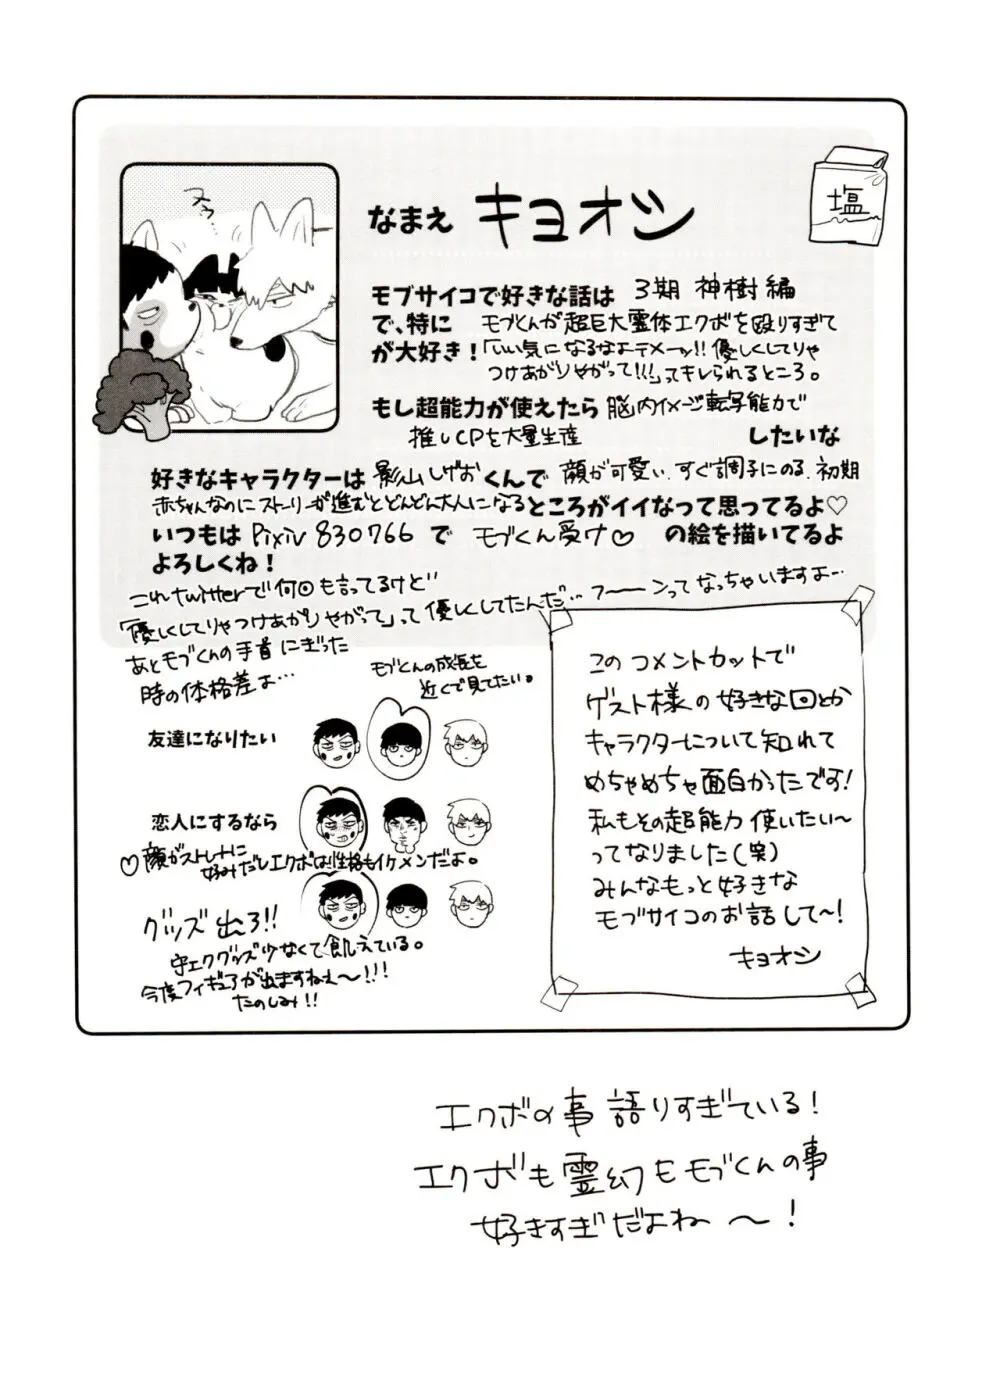 スゥ…
塩
なまえ キョオシ
モブサイコで好きな話は 3期 神樹編
で、特に モブくんが超巨大霊体エクボを殴りすぎて
が大好き！「いい気になるなよテメーッ!!優しくしてりゃ
つけあがりやがって!!!」ってキレられるところ。
もし超能力が使えたら 脳内イメージ転写能力で
推しCPを大量生産 したいな
好きなキャラクターは 影山しげお くんで 顔が可愛い、すぐ調子にのる、初期
赤ちゃんなのにストーリーが進むとどんどん大人になる ところがイイなって思ってるよ♡
いつもは Pixiv 830766 で モブくん受け♡ の絵を描いてるよ
よろしくね！
これtwitterで何回も言ってるけど
「優しくしてりゃつけあがりやがって」って優しくしてたんだ…フーーンってなっちゃいますよ…
あとモブくんの手首にぎった
時の体格差よ…
モブくんの成長を
近くで見てたい。
友達になりたい
恋人にするなら
♡顔がストレートに
好みだしエクボは性格もイケメンだよ。
グッズ出ろ!!
守エクグッズ少なくて飢えている。
今度フィギュアが出ますねぇ〜!!!
たのしみ!!
このコメントカットで
ゲスト様の好きな回とか
キャラクターについて知れて
めちゃめちゃ面白かったです!
私もその超能力使いたい〜
ってなりました(笑)
みんなもっと好きな
モブサイコのお話して〜!
キョオシ
エクボの事語りすぎている!
エクボも霊幻もモブくんの事
好きすぎだよね〜!